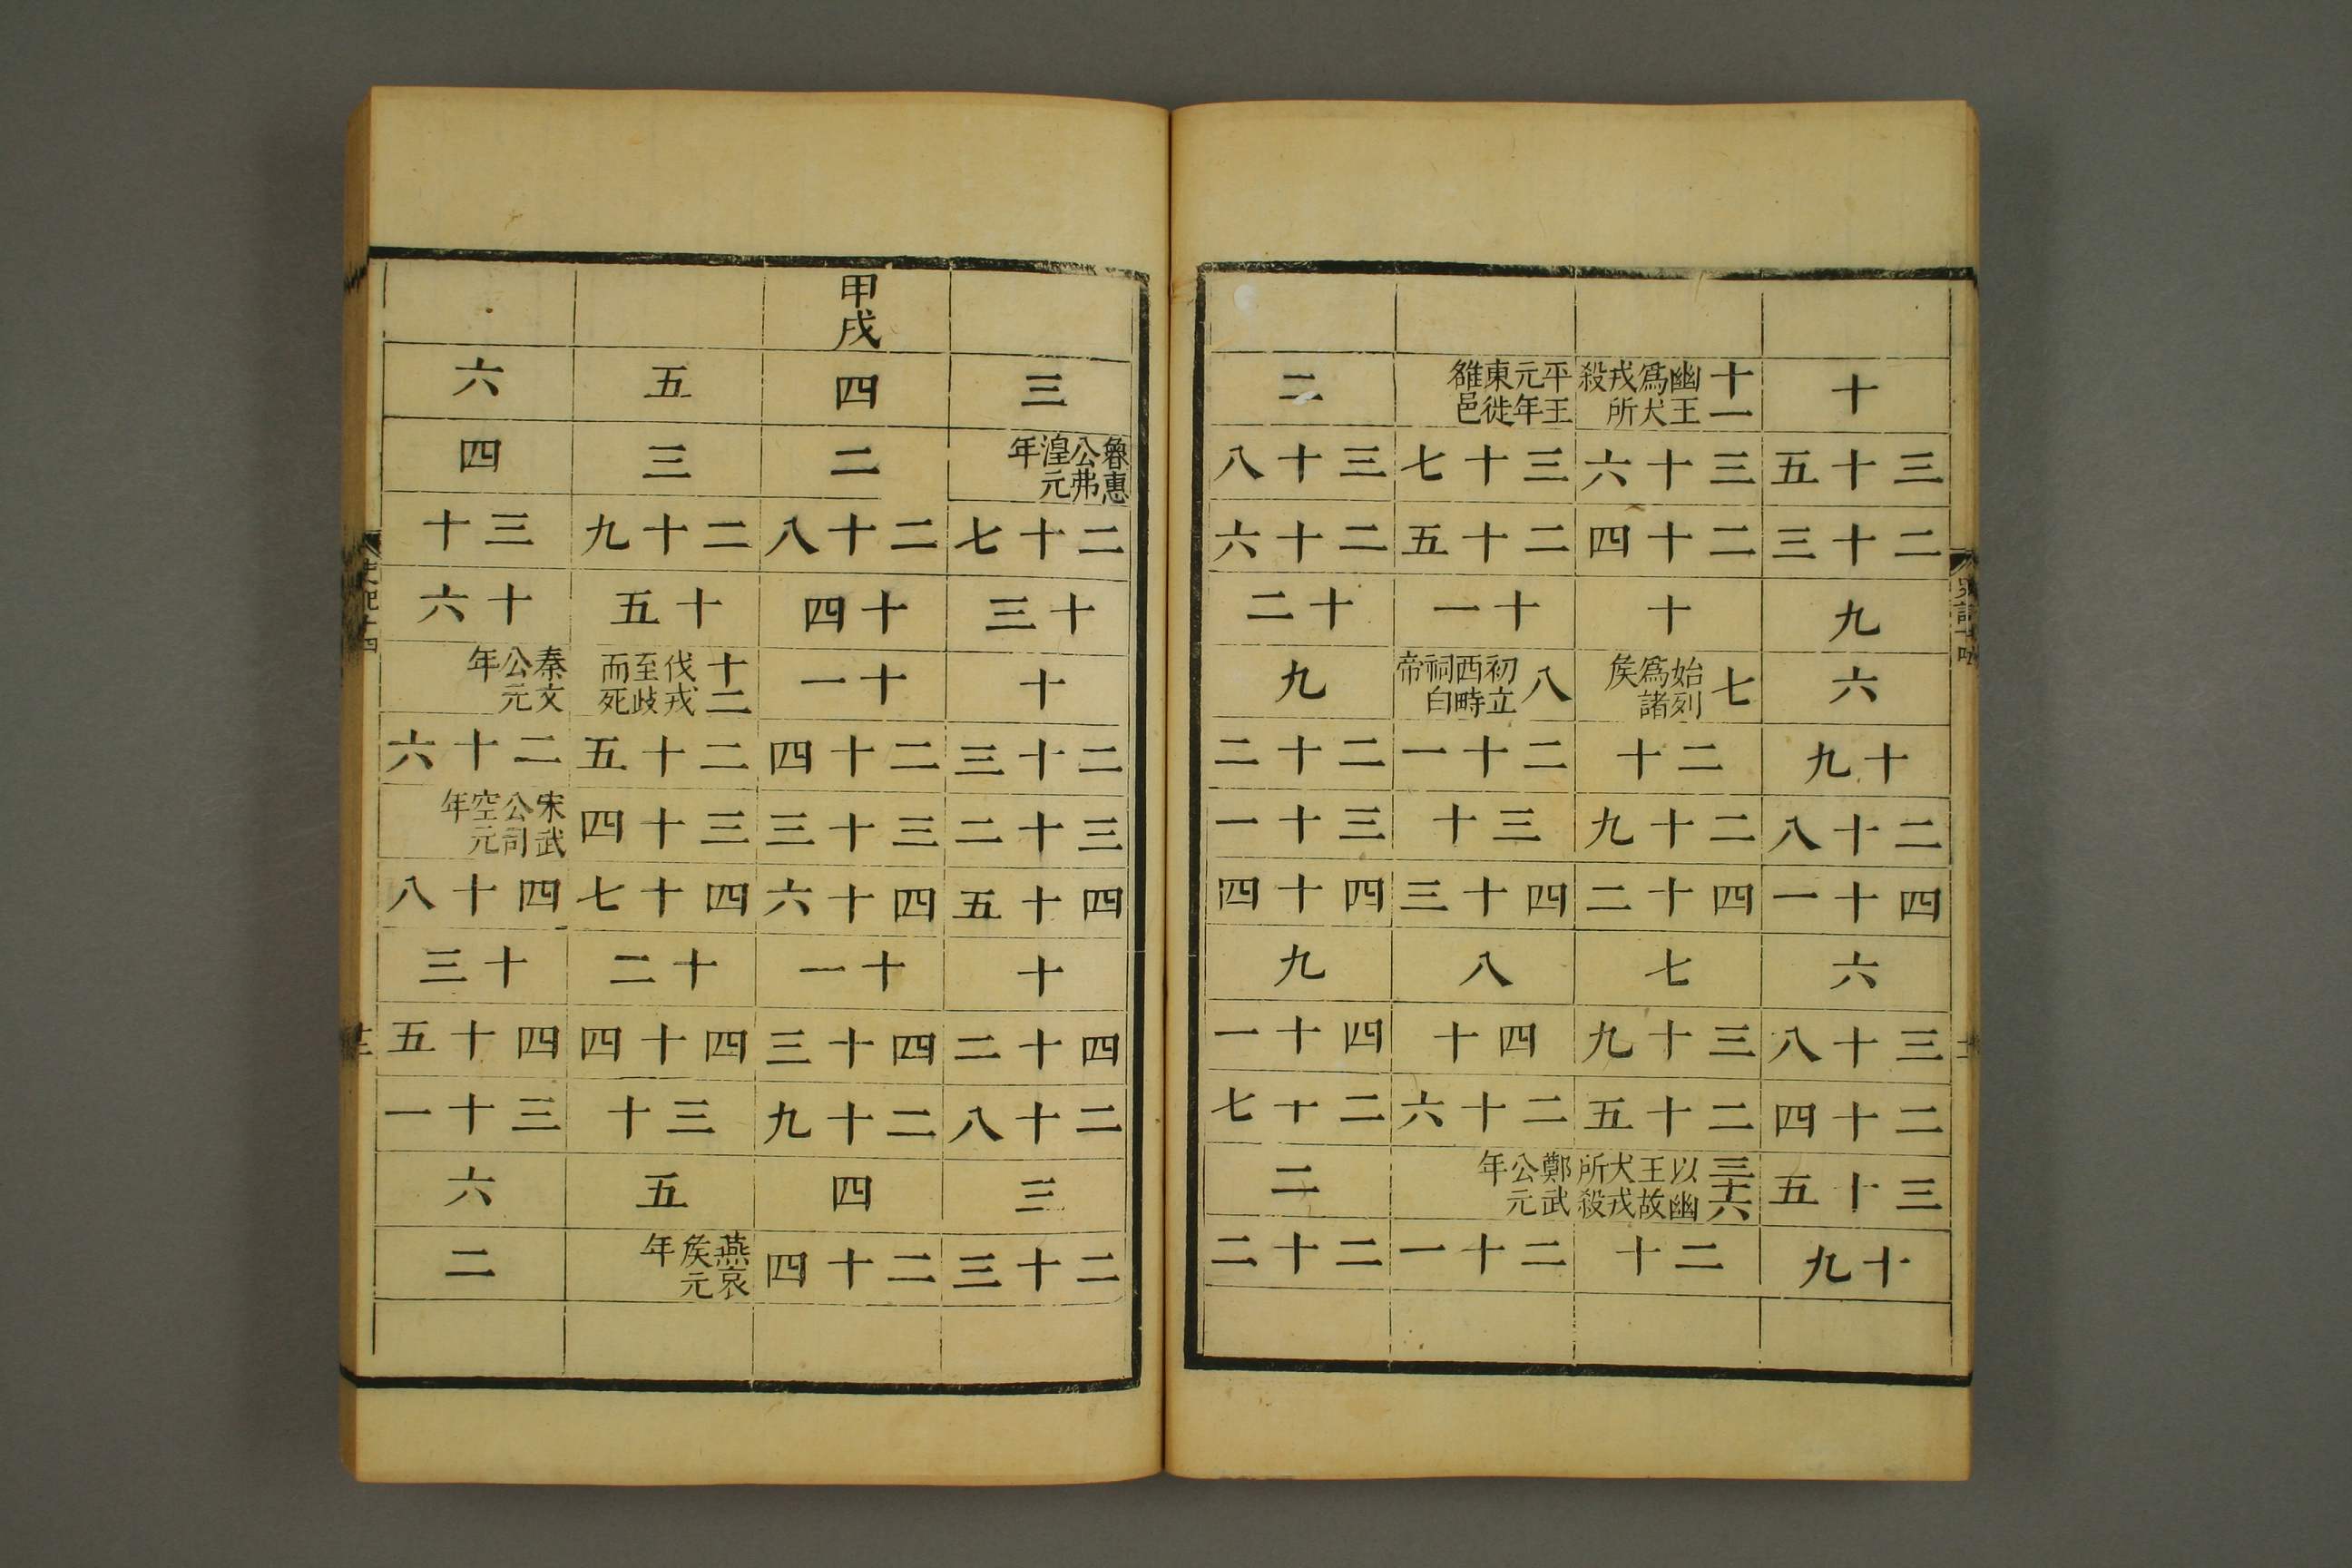 十
三十五
二十三
九
六
十九
二十八
四十一
六
三十八
二十四
三十五
十九
十一 幽王爲犬戎所殺
三十六
二十四
十
七 始列爲諸矦
二十
二十九
四十二
七
三十九
二十五
三十六 以幽王故犬戎所殺
二十
平王元年東徙雒邑
三十七
二十五
十一
八 初立西畤祠白帝
二十一
三十
四十三
八
四十
二十六
鄭武公元年
二十一
二
三十八
二十六
十二
九
二十二
三十一
四十四
九
四十一
二十七
二
二十二
三
魯惠公弗湟元年
二十七
十三
十
二十三
三十二
四十五
十
四十二
二十八
三
二十三
甲戌
四
二
二十八
十四
十一
二十四
三十三
四十六
十一
四十三
二十九
四
二十四
五
三
二十九
十五
十二 伐戎至歧而死
二十五
三十四
四十七
十二
四十四
三十
五
燕哀矦元年
六
四
三十
十六
秦文公元年
二十六
宋武公司空元年
四十八
十三
四十五
三十一
六
二